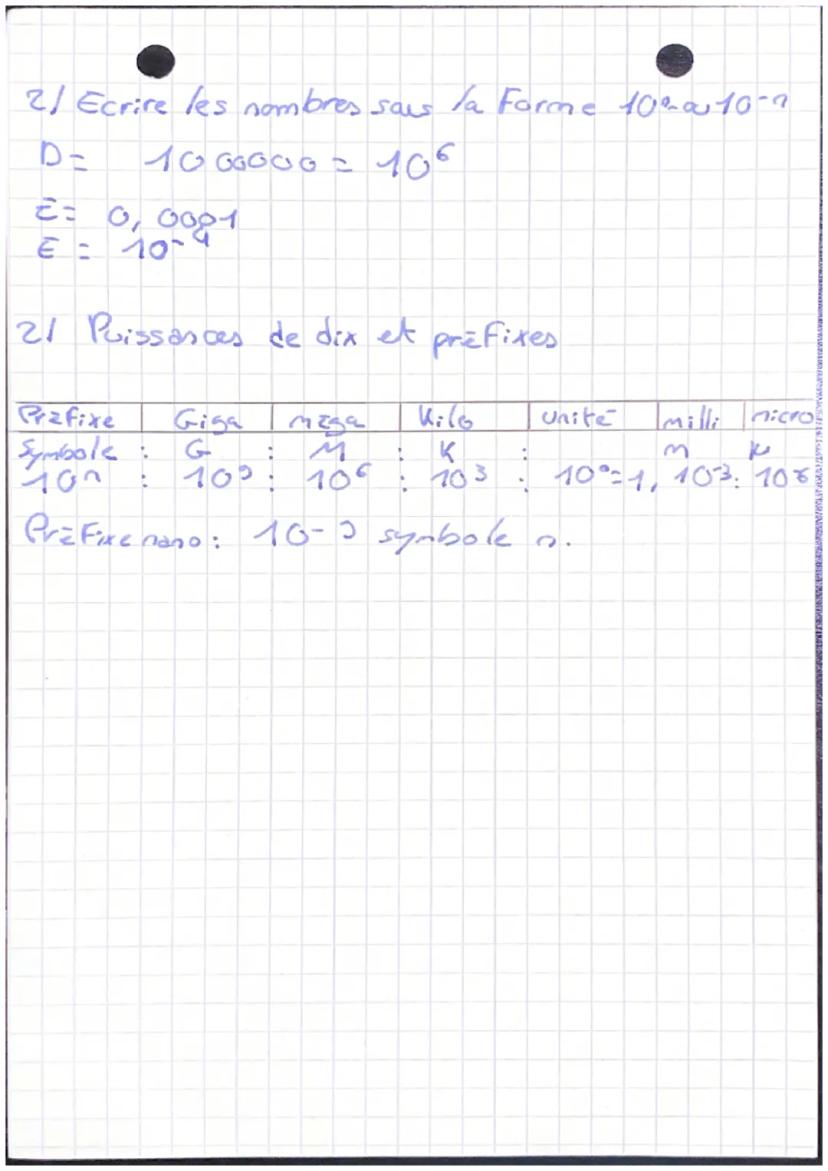 2/ Ecrire les nombres sous la Forme 10ⁿ ou 10⁻ⁿ
D = 1000000 = 10⁶
E = 0,0001
E = 10⁻⁴
2/ Puissances de dix et préfixes
Préfixe | Giga | méga | Kilo | unité | milli | micro
Symbole : G : M : K : m µ
10ⁿ : 10⁹ : 10⁶ : 10³ : 10⁰=1, 10⁻³:
Préfixe nano : 10⁻⁹ symbole n.